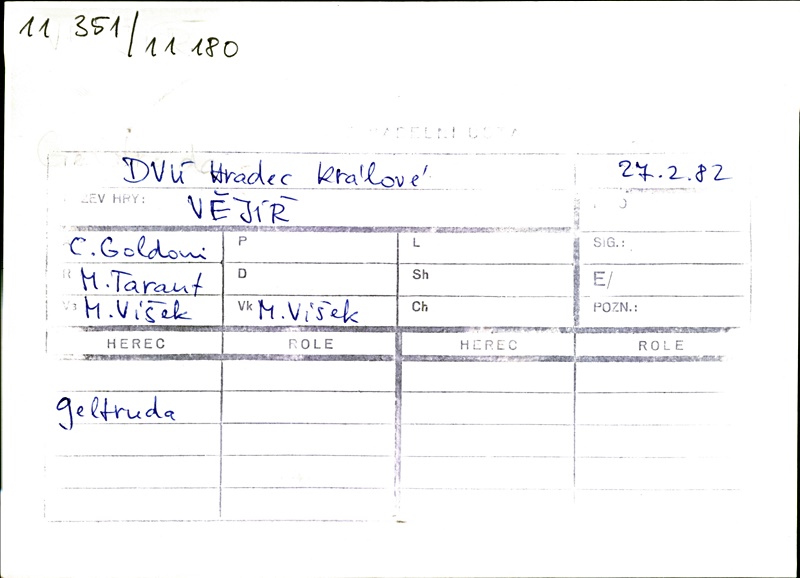 11 351/11 180
DVÚ Hradec králové 27.2.82
ZEV HRY: VĚJÍŘ
C. Goldoni P L SIG.:
R M. Tarant D Sh E/
M. Višek Vk M. Višek Ch POZN.:
HEREC ROLE HEREC ROLE
geltruda